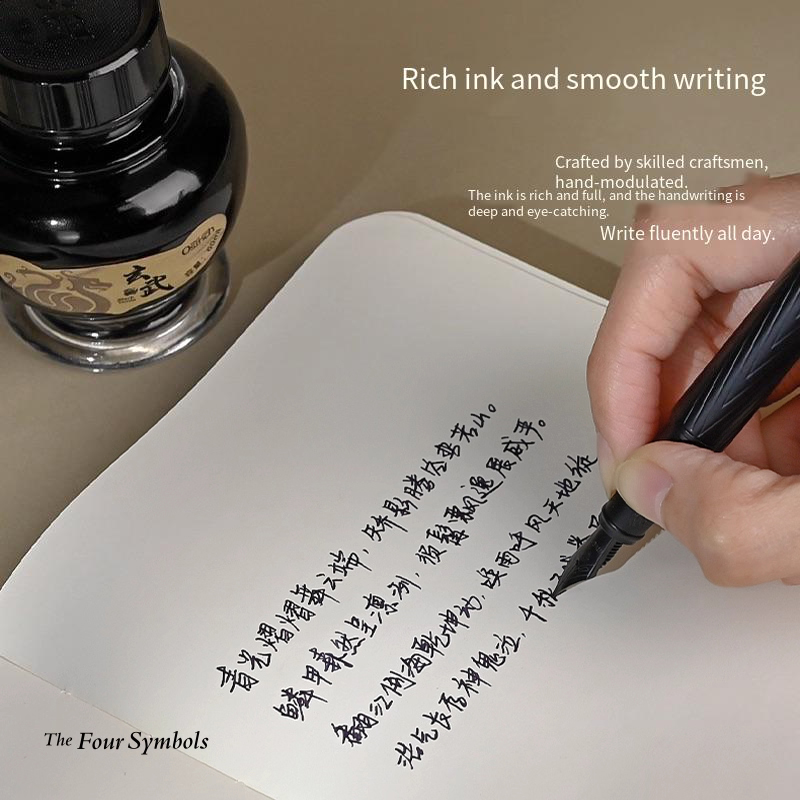 Rich ink and smooth writing
Crafted by skilled craftsmen,
hand-modulated.
The ink is rich and full, and the handwriting is
deep and eye-catching.
Write fluently all day.
玄武
青光熠熠舞云端，矫影腾
鳞甲森然呈凛冽，须鬣飘逸展威严。
翻江倒海乾坤动，唤雨呼风天地旋
浩气长存神鬼泣，千秋
The Four Symbols